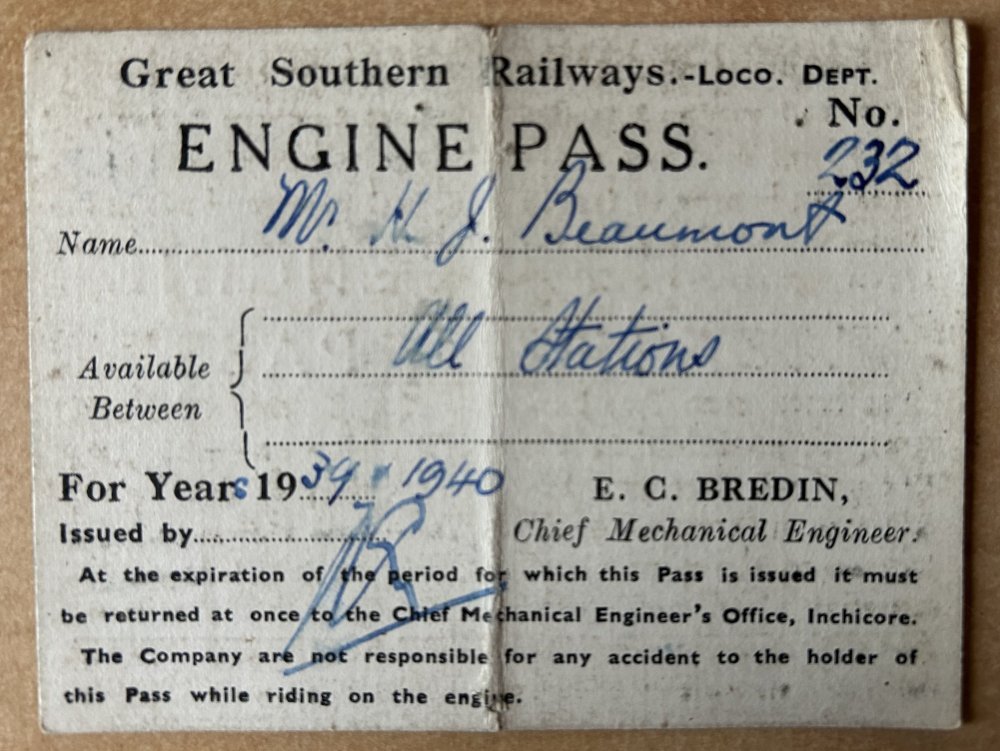 Great Southern Railways.-LOCO. DEPT.
ENGINE PASS.
No.
232
Name Mr. H J. Beaumont
All Stations
Available
Between
For Years 1939 1940
E. C. BREDIN,
Issued by
Chief Mechanical Engineer.
At the expiration of the period for which this Pass is issued it must
be returned at once to the Chief Mechanical Engineer's Office, Inchicore.
The Company are not responsible for any accident to the holder of
this Pass while riding on the engine.